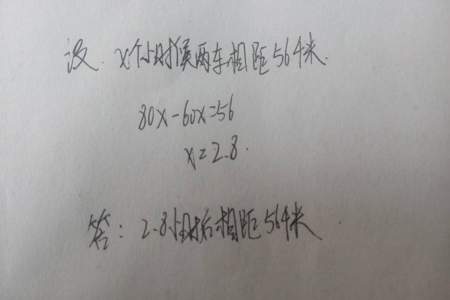 设 x个小时候两车相距56千米.
80x-60x=56
x=2.8.
答：2.8小时后相距56千米.